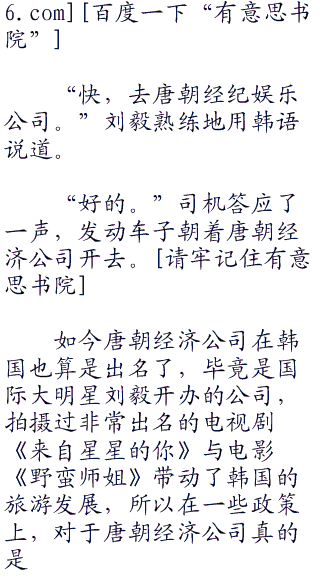 6.com][百度一下“有意思书
院”]
“快，去唐朝经纪娱乐
公司。”刘毅熟练地用韩语
说道。
“好的。”司机答应了
一声，发动车子朝着唐朝经
济公司开去。[请牢记住有意
思书院]
如今唐朝经济公司在韩
国也算是出名了，毕竟是国
际大明星刘毅开办的公司，
拍摄过非常出名的电视剧
《来自星星的你》与电影
《野蛮师姐》带动了韩国的
旅游发展，所以在一些政策
上，对于唐朝经济公司真的
是